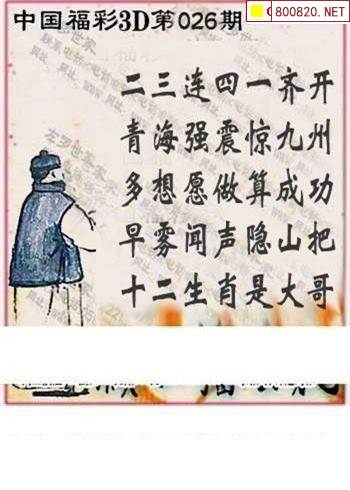 800820.NET
中国福彩3D第026期
二三连四一齐开
青海强震惊九州
多想愿做算成功
早雾闻声隐山把
十二生肖是大哥